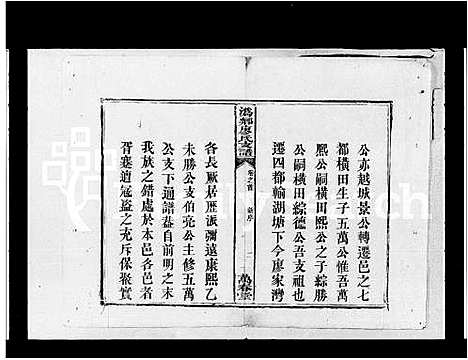 公亦越城景公轉遷邑之七
都橫田生子五萬公惟吾萬
熙公嗣橫田熙公之子綜勝
公嗣橫田綜德公吾支祖也
遷四都榆湖塘下今廖家灣
溈寧廖氏支譜
卷之首
萬春堂
各長厥居歷派彌遠康熙乙
未勝公支伯亮公主修五萬
公支下通譜蓋自前明之末
我族之錯處於本邑各邑者
胥蹇遒寇盜之充斥保聚實